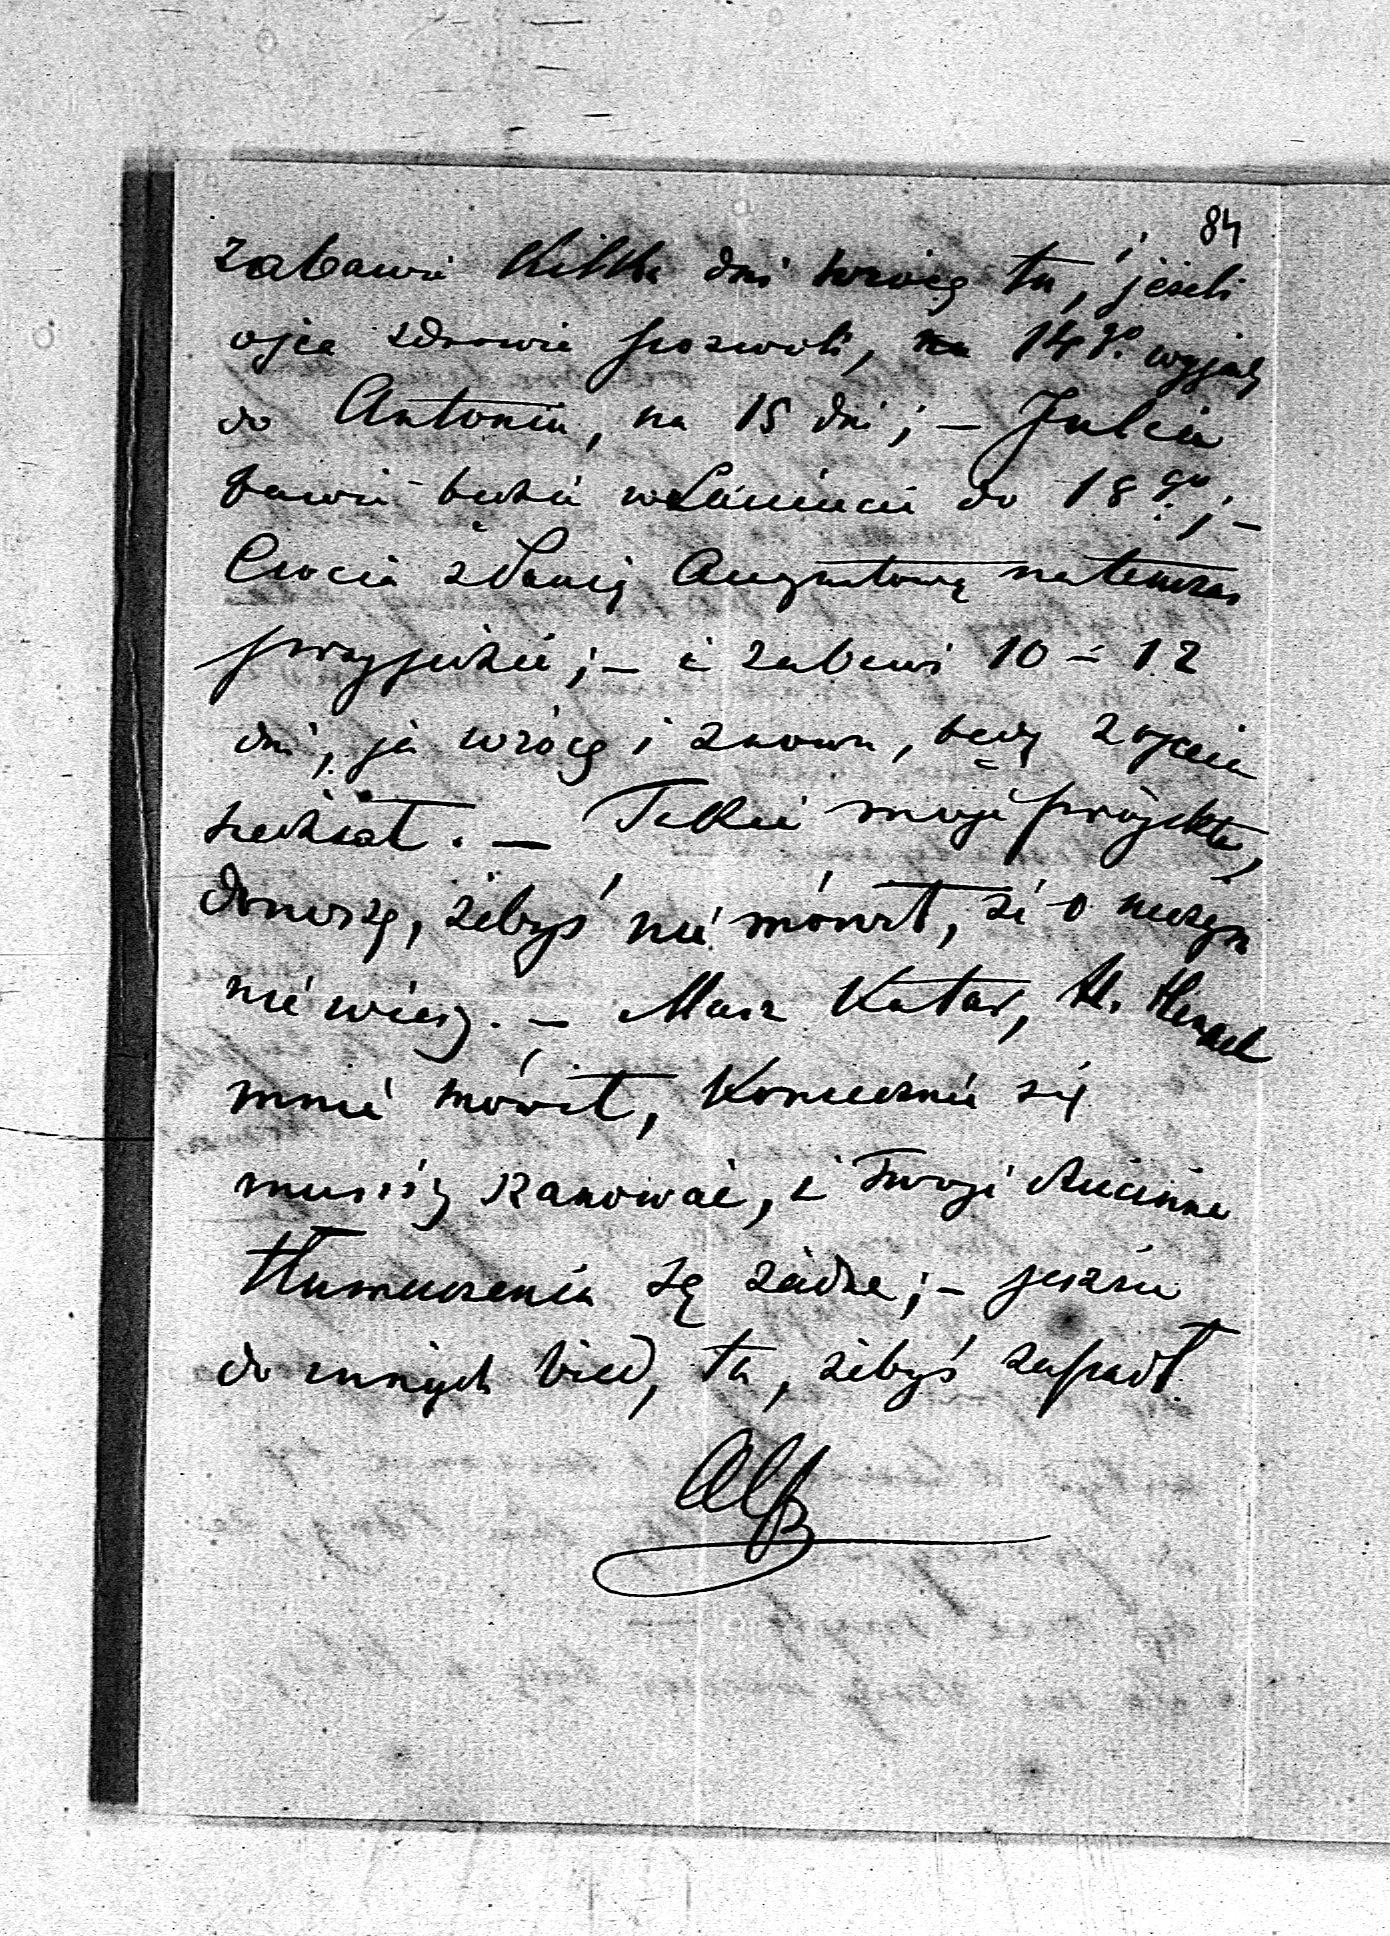 84
zabawię kilka dni wrócę tu, jeżeli
ojca zdrowie pozwoli, 14go wyjadę
do Antonin, na 15 dni; – Julcia
bawić będzie w Łańcucie do 18go; –
Ciocia z Panią Augustową natenczas
przyjedzie; – i zabawi 10 – 12
dni, ja wrócę i znowu, będę z ojcem
siedział. – Takie moje projekta,
donoszę, żebyś nie mówił, że o niczym
nie wiesz. – Masz Katar,
mnie mówił, koniecznie się
musisz szanować, i Twoje
tłumaczenia są żadne; – jeszcze
do innych bied, ta, żebyś zapadł.
Alf